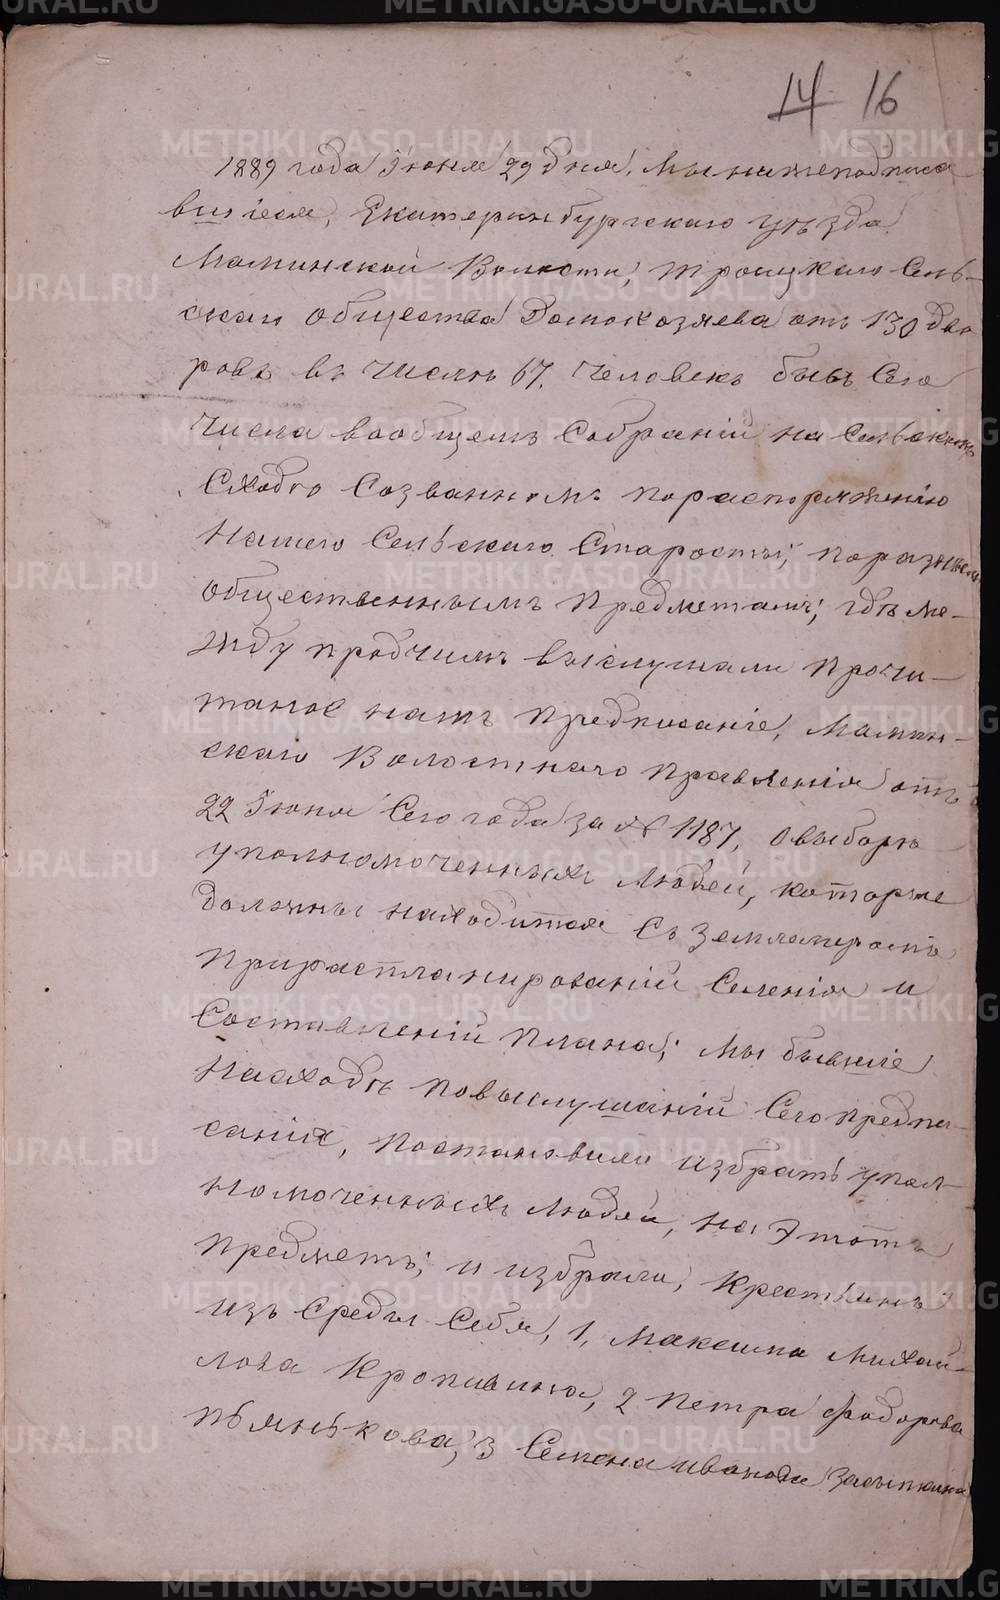 14 16
1889 года Іюня 29 дня, мы нижеподписа
вшіеся, Екатеринбургскаго уѣзда
Маминской Волости, Троицкаго Сель-
скаго общества Домохозяева отъ 130 дво
ровъ въ числѣ 67. человекъ бывъ Сего
Числа вообщемъ Собраніи на Сельскомъ
Сходѣ Созванномъ по распоряженію
Нашего Сельскаго Старосты, поразнымъ
общественнымъ предметамъ; гдѣ ме-
жду прочимъ выслушали Прочи-
таное намъ предписаніе, Мамин-
скаго Волостнаго Правленія отъ
22 Іюня Сего года за № 1187, овыборѣ
уполномоченныхъ людей, которые
должны находится Съ Землемеромъ
Прираспланированіи Селенія и
Составленіи плана; мы бывшіе
Насходѣ повыслушаніи Сего предпи-
санія, постановили избрать упол-
номоченныхъ людей, на этотъ
предметъ; и избрали, крестьянъ
изъ Среды Себя, 1, Максима Михай-
лова Кропивина, 2 Петра Федорова
Пьянькова, 3 Семена иванова Засыпкина
METRIKI.GASO-URAL.RU